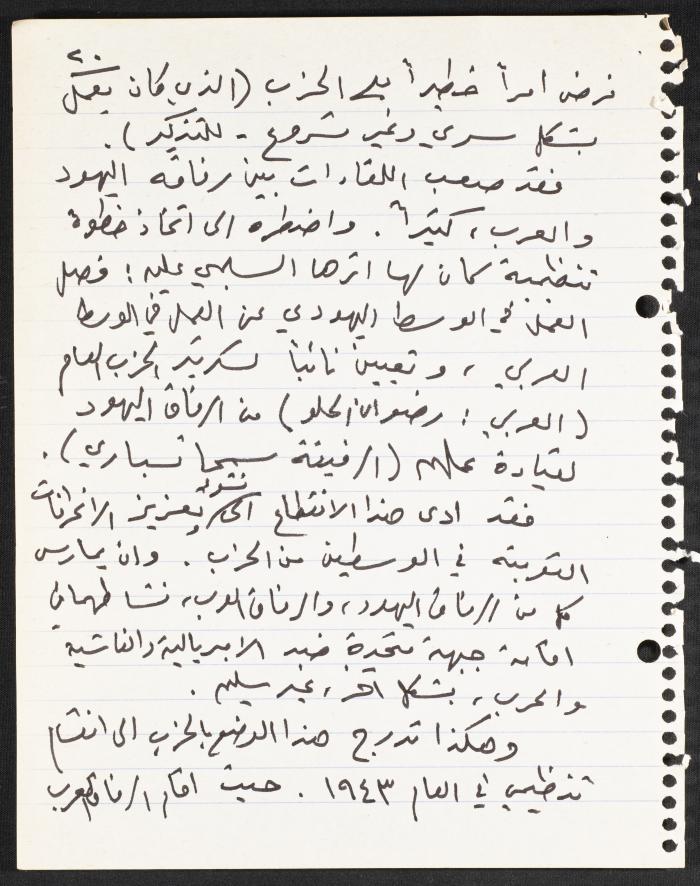 ٢٠
فرض امرأ خطيراً على الحزب (الذي كان يعمل
بشكل سري وغير مشروع - للتذكير).
فقد صعب اللقاءات بين رفاقه اليهود
والعرب، كثيراً. واضطره الى اتخاذ خطوة
تنظيمية كان لها اثرها السلبي عليه: فصل
العمل في الوسط اليهودي عن العمل في الوسط
العربي، وتعيين نائباً لسكرتير الحزب العام
(العربي: رضوان الحلو) من الرفاق اليهود
لقيادة عملهم (الرفيقة سيما تسباري).
فقد ادى هذا الانقطاع الى نشوء وتعزيز الانحرافات
القومية في الوسطين من الحزب. وان يمارس
كل من الرفاق اليهود، والرفاق العرب، نشاطهما في
اقامة جبهة متحدة ضد الامبريالية والفاشية
والحرب، بشكل آخر، غير سليم.
وهكذا تدرج هذا الوضع بالحزب الى انقسام
تنظيمي في العام ١٩٤٣. حيث اقام الرفاق العرب